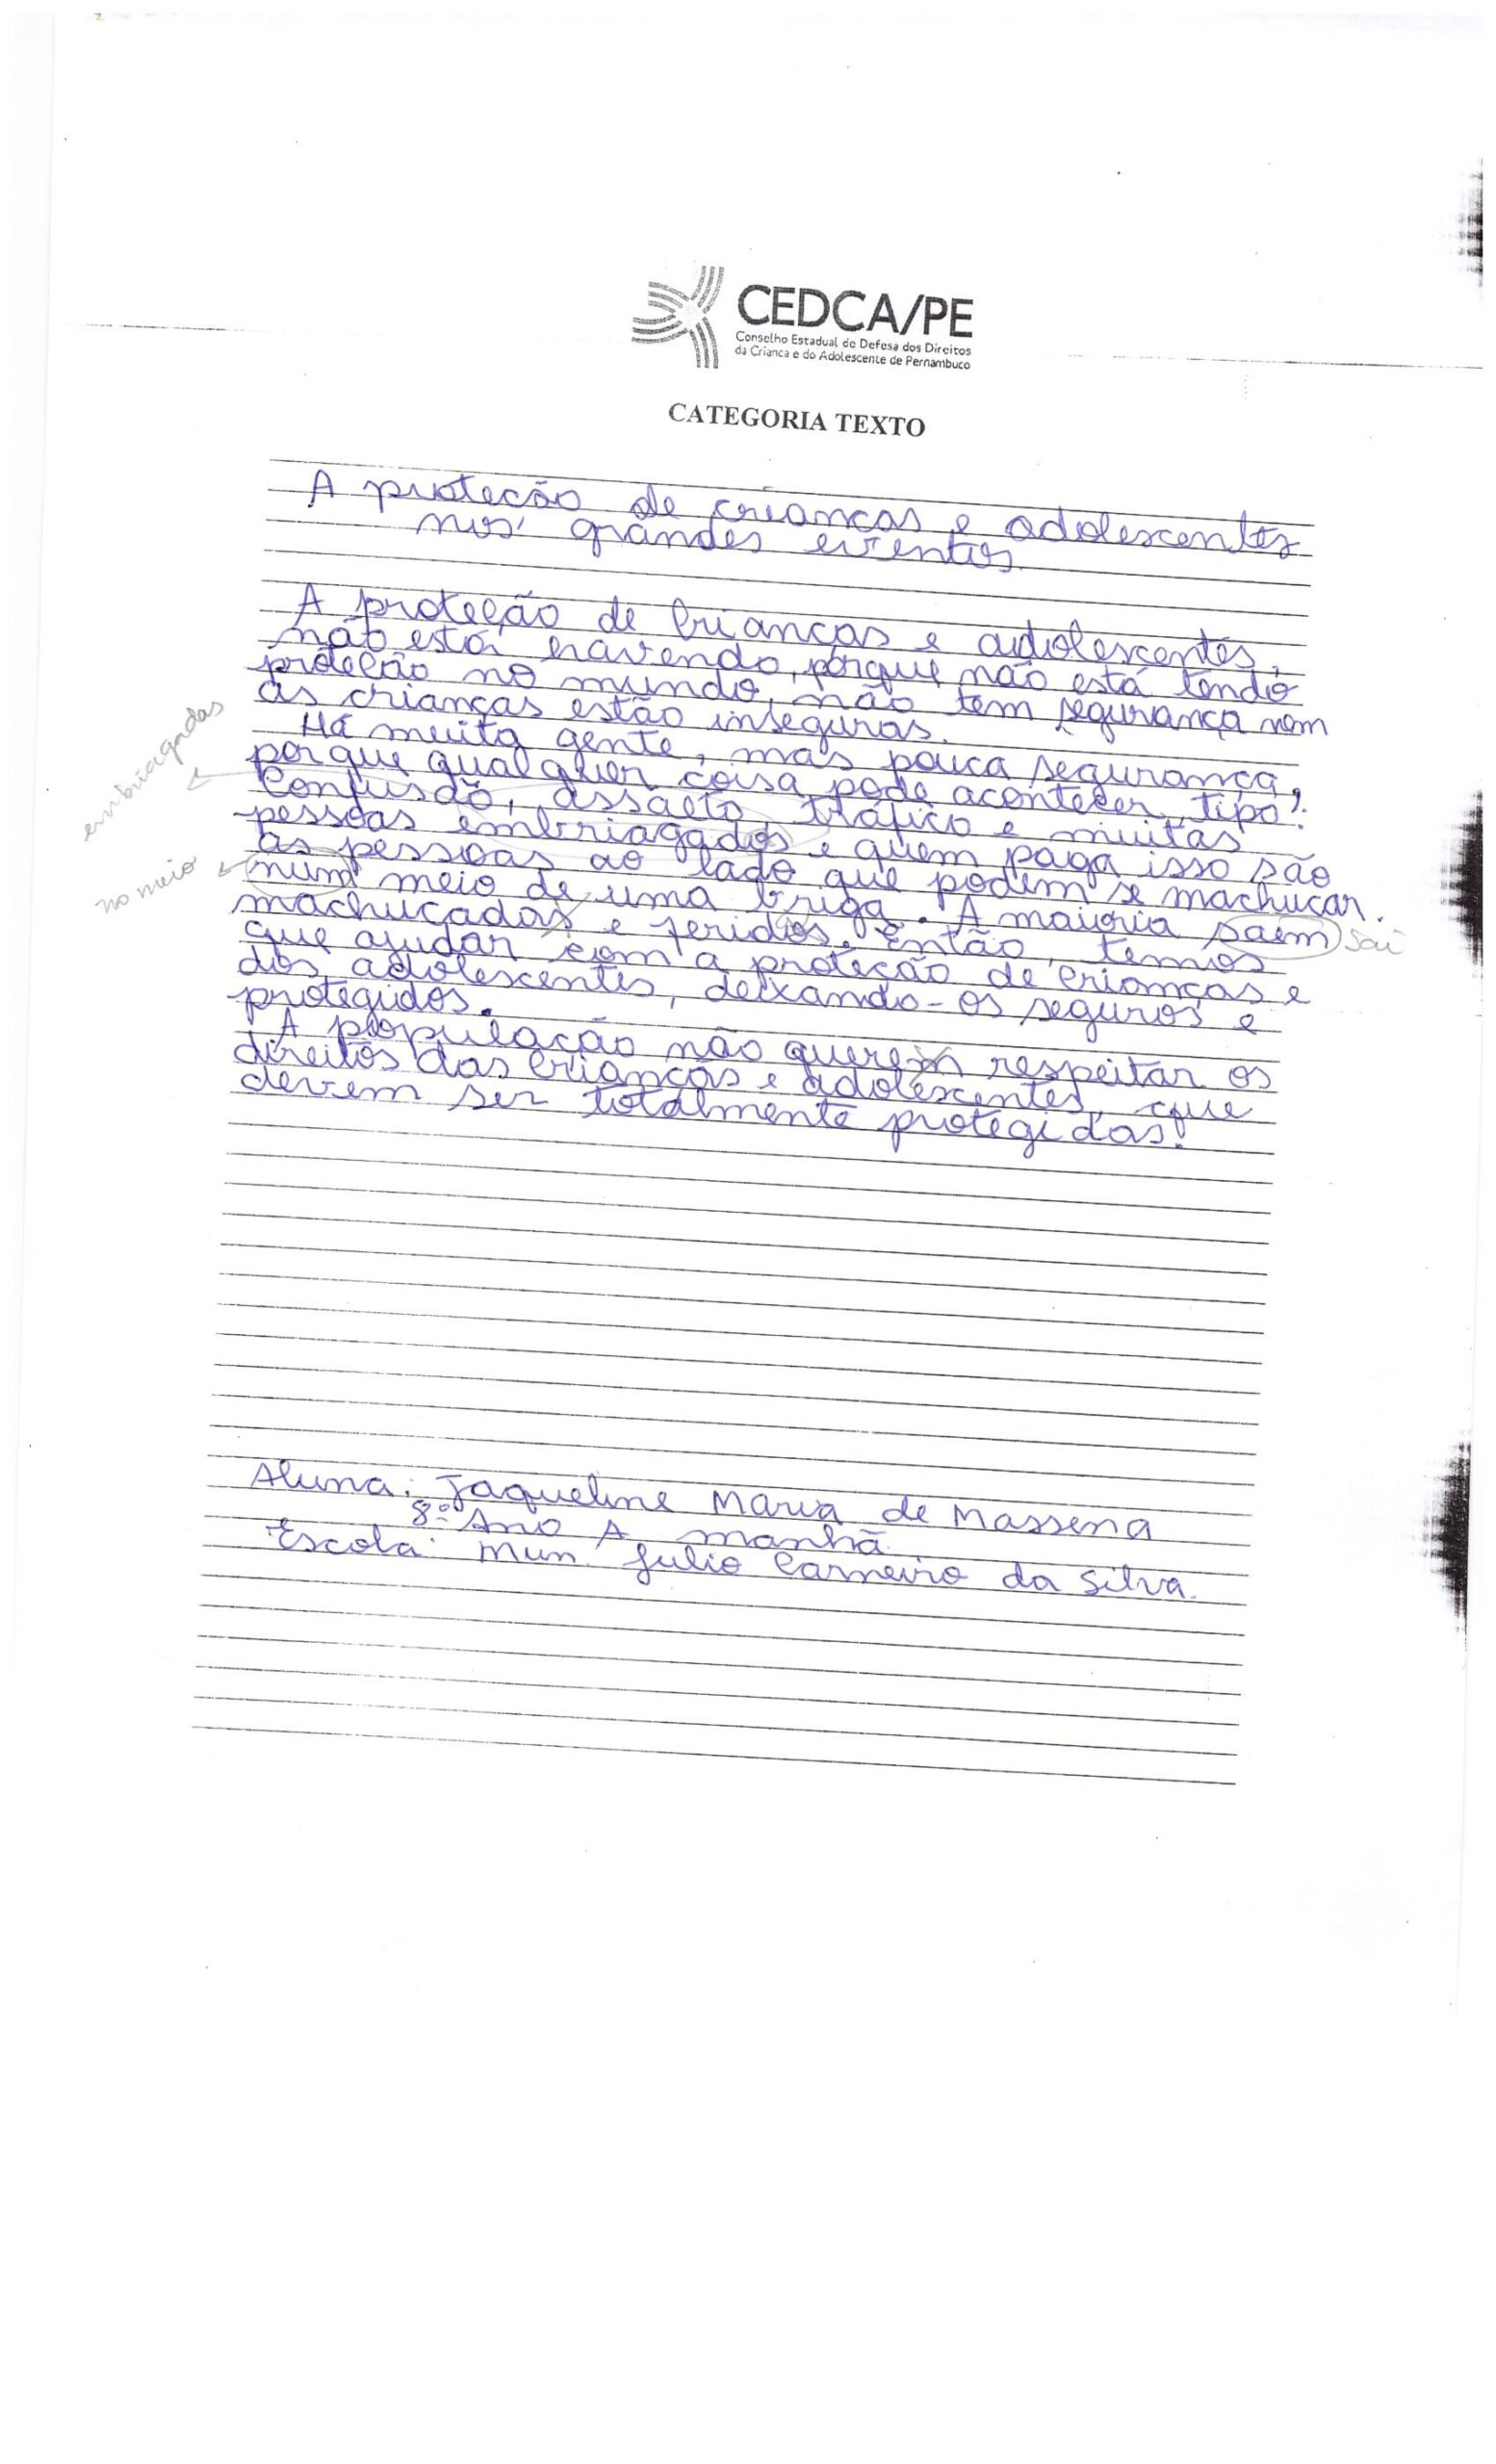 CEDCA/PE
Conselho Estadual de Defesa dos Direitos
da Criança e do Adolescente de Pernambuco
CATEGORIA TEXTO
A proteção de crianças e adolescentes
nos grandes eventos.
A proteção de crianças e adolescentes,
não está havendo, porque não está tendo
proteção no mundo, não tem segurança nem
as crianças estão inseguras.
Há muita gente, mas pouca segurança,
porque qualquer coisa pode acontecer, tipo:
Confusão, assalto, tráfico e muitas
pessoas embriagados e quem paga isso são
as pessoas ao lado que podem se machucar.
num meio de uma briga. A maioria saem sai
machucadas e feridos. Então, temos
que ajudar com a proteção de crianças e
dos adolescentes, deixando-os seguros e
protegidos.
A população não querem respeitar os
direitos das crianças e adolescentes, que
devem ser totalmente protegidas!
embriagadas
no meio
Aluna: Jaqueline Maria de Massena
8º Ano A manhã
Escola: Mun. Julio Carneiro da Silva.